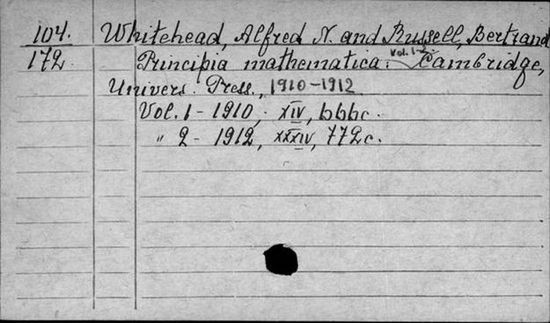 104. Whitehead, Alfred N. and Russell, Bertrand
172 Principia mathematica. Vol. 1-2. Cambridge,
Univers. Press, 1910-1912
Vol. 1 - 1910, XIV, 666c.
" 2 - 1912, XXXIV, 772c.